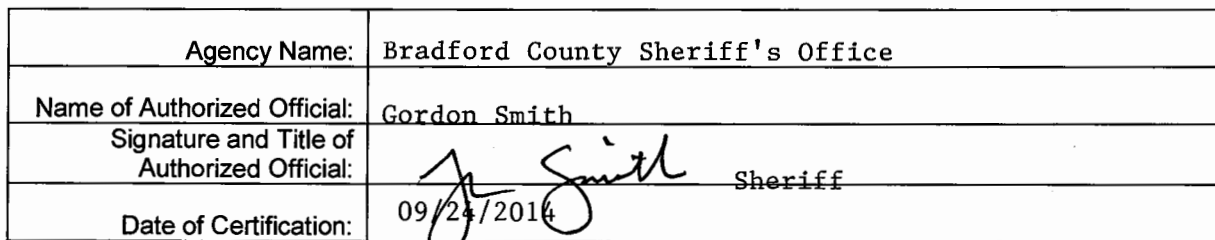 Agency Name: Bradford County Sheriff's Office
Name of Authorized Official: Gordon Smith
Signature and Title of
Authorized Official: Smith Sheriff
Date of Certification: 09/24/2014